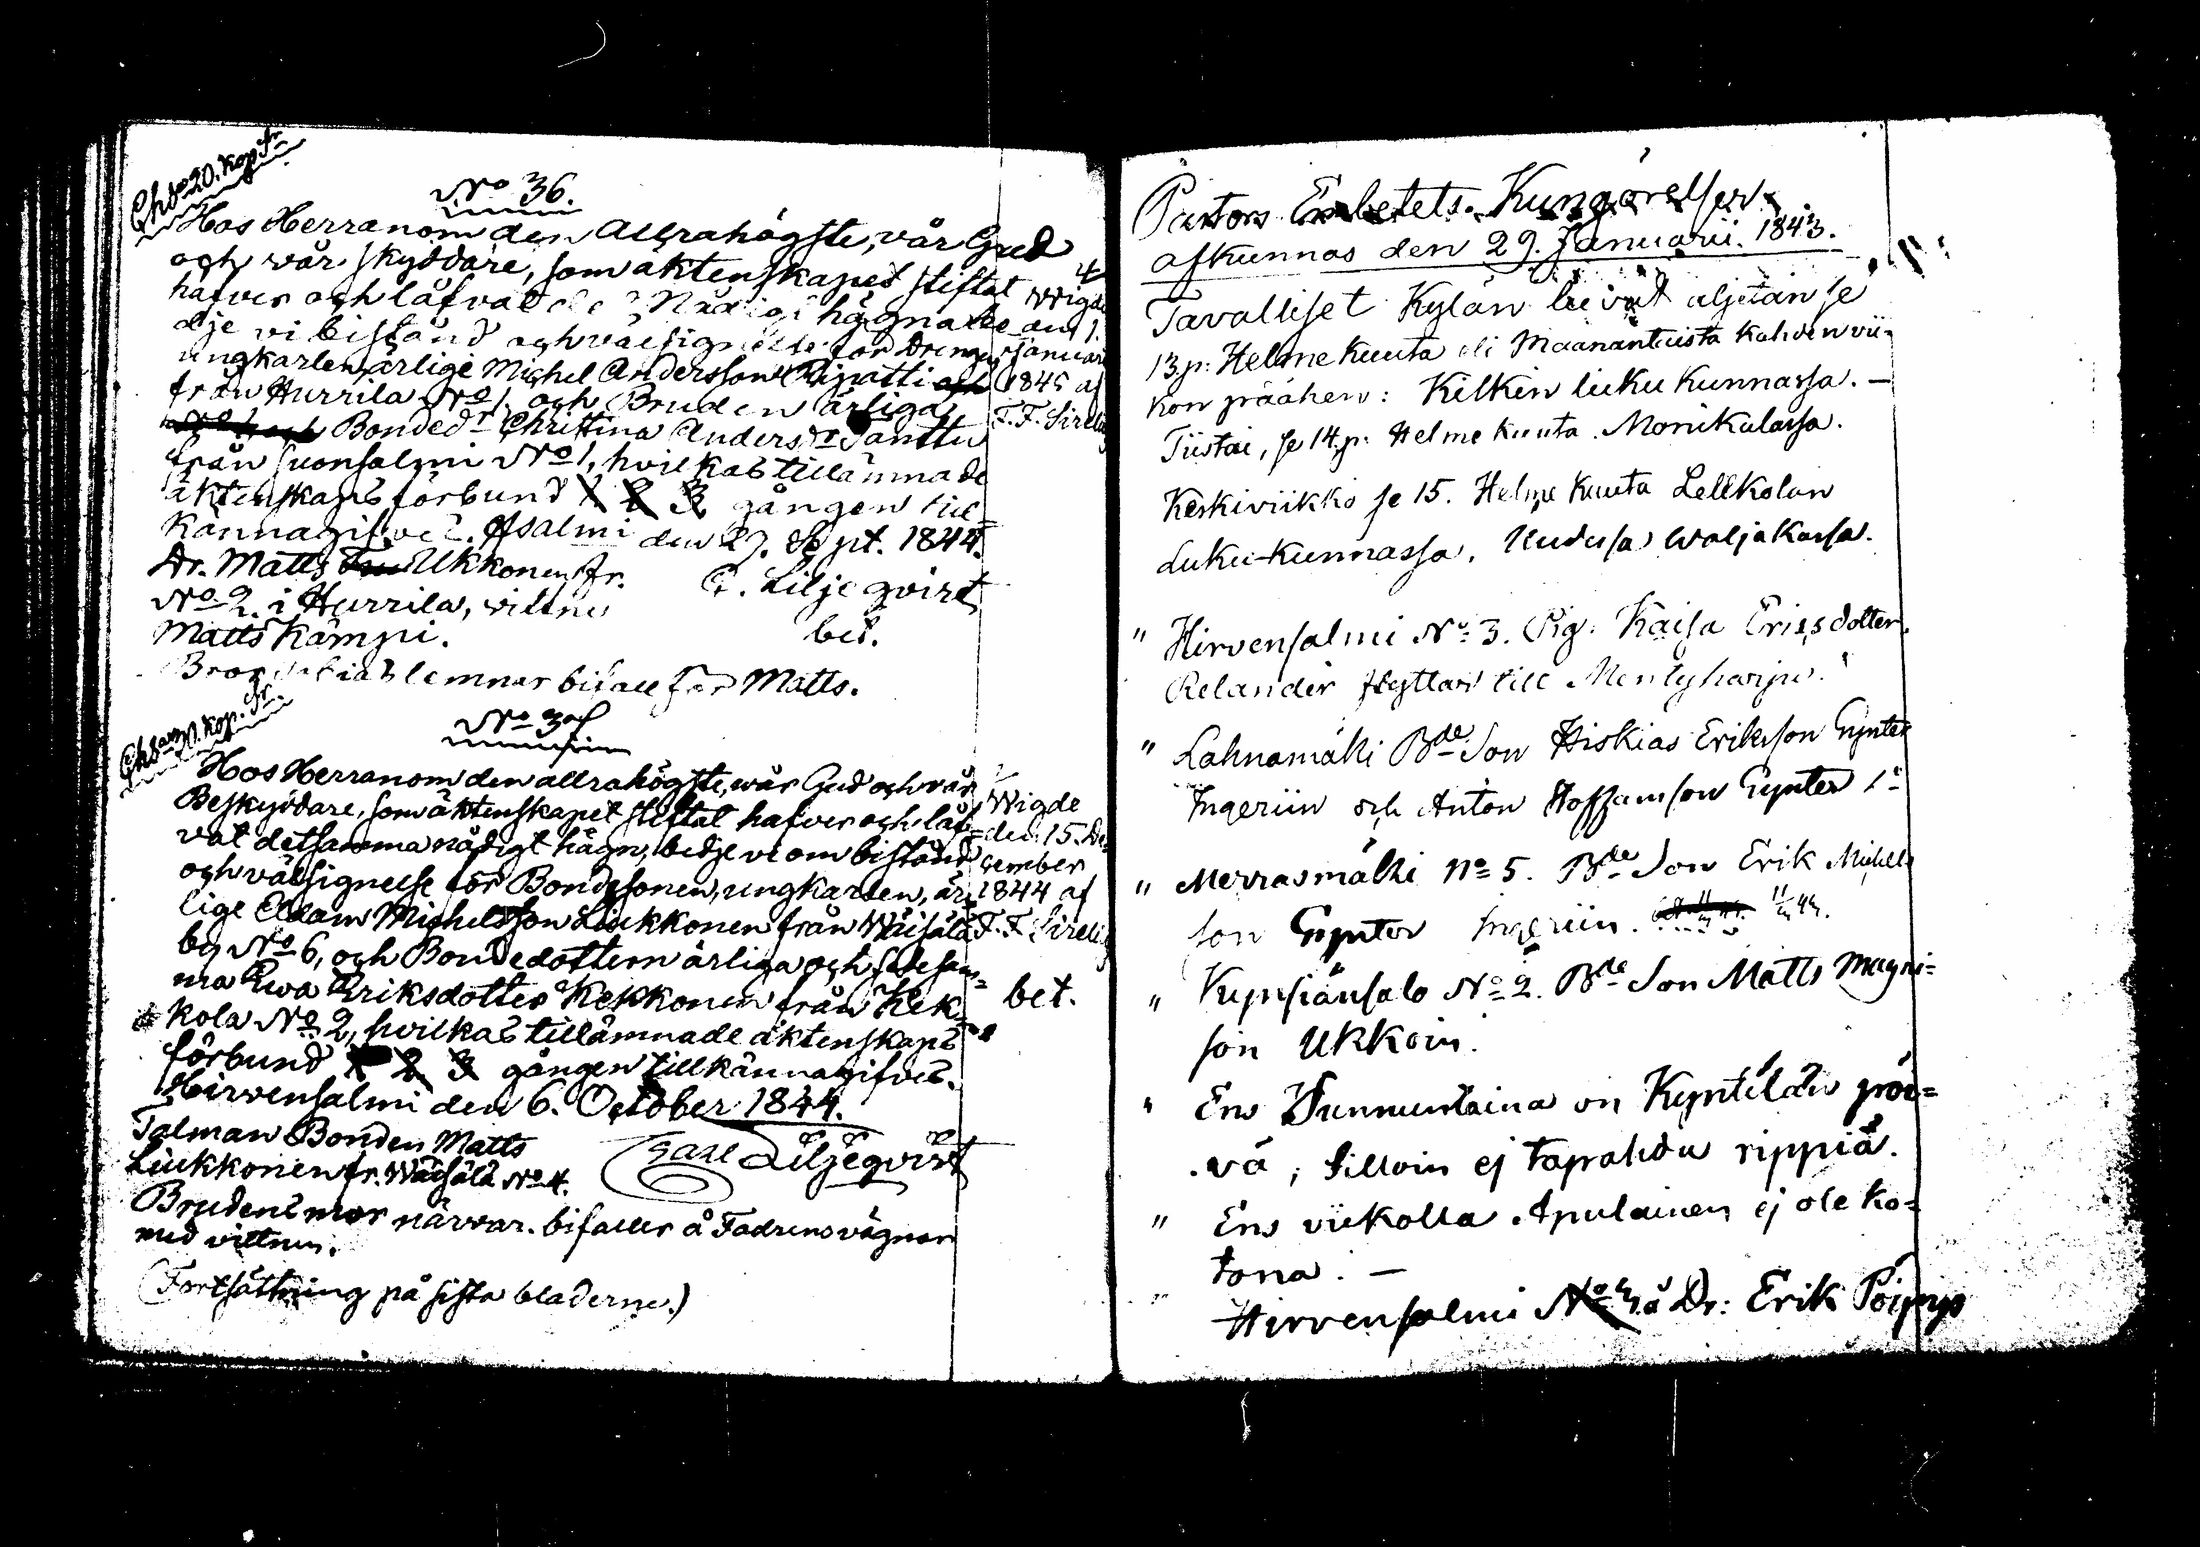 Chs 20. Kop. Sr
No 36.
Hos Herranom den Allrahögste, vår Gud
och vår skyddare, som äktenskapet stiftat
hafver och låfvat det Nådigt hägna be
dje vi bistånd och välsignelse för Drengen
ungkarlen, ärlige Michel Andersson Ripatti
från Hurrila No 1. och Bruden ärliga
Bonded:r Christina Andersdr Santtu
från Suonsalmi No 1, hvilkas tillämnade
äktenskaps förbund 1 2 3 gången till-
kännagifves. Hsalmi den 29. Sept. 1844.
Dr. Matts Ukkonen fr.
No 2. i Hurrila, vittne
C. Liljeqvist
Matts Kämpi.
bet.
Bror lemnar bifall för Matts.
Wigde
den 1.
Januari
1845 af
F. F. Sirelius
Chs 20. Kop. Sr.
No 37
Hos Herranom den allrahögste, wår Gud och vår
Beskyddare, som äktenskapet stiftat hafver och låf-
vat detsamma nådigt hägn, bedje vi om bistånd
och välsignelse för Bondesonen, ungkarlen, är-
lige Adam Michelsson Liukkonen från Wäisälä
by No 6, och Bondedottern ärliga och sedesam-
ma Ewa Eriksdotter Kekkonen från Kek-
kola No 2, hvilkas tillämnade äktenskaps
förbund 1 2 3 gången tillkännagifves.
Hirvensalmi den 6. October 1844.
Talman Bonden Matts
Liukkonen fr. Wäisälä No 4.
Carl Liljeqvist
Brudens mor närvar. bifaller å Fadrens vägnar
med vittnen.
(Fortsättning på sista bladerne.)
Wigde
den 15. De-
cember
1844 af
F. F. Sirelius
bet.
Pastors Embetets Kungörelser
afkunnas den 29. Januarii. 1843.
Tavalliset Kylän luvut aljetan se
13 p: Helme kuuta eli Maanantaista kahden vii-
kon päähen: Kilkin luku kunnassa. —
Tiistai, se 14. p: Helme kuuta Monikalassa.
Keskiviikko se 15. Helme kuuta Lellkolan
Luku-kunnassa, Uudessa Waljakassa.
" Hirvensalmi No 3. Pig. Kaisa Ericsdotter
Relander flyttar till Mentyharju.
" Lahnamäki Bde Son Hiskias Eriksson Gynter
Ingeriin och Anton Staffansson Gynter
" Merrasmäki No 5. Bde Son Erik Michels
son Gynter Ingeriin.
" Kypsiänsalo No 2. Bde Son Matts Magni-
son Ukkoin.
" Ens Sunnuntaina on Kyntilän päi-
vä, silloin ej tapahdu rippiä.
" Ens viikolla Apulainen ej ole ko-
tona. —
" Hirvensalmi No 4. å Dr: Erik Pöyry